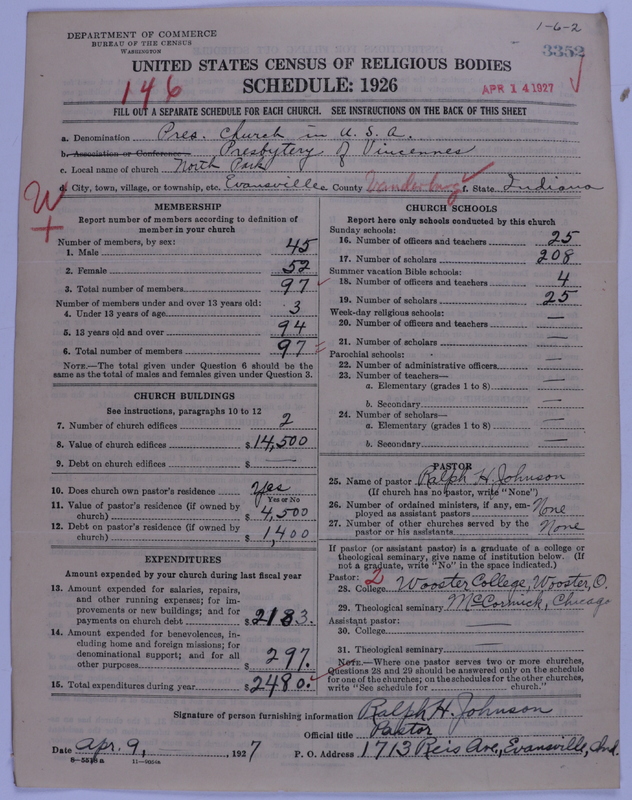 1-6-2
DEPARTMENT OF COMMERCE
BUREAU OF THE CENSUS
WASHINGTON
3352
UNITED STATES CENSUS OF RELIGIOUS BODIES
SCHEDULE: 1926
146
APR 14 1927
FILL OUT A SEPARATE SCHEDULE FOR EACH CHURCH. SEE INSTRUCTIONS ON THE BACK OF THIS SHEET
a. Denomination Pres. Church in U.S.A.
b. Association or Conference Presbytery of Vincennes
c. Local name of church North Park
d. City, town, village, or township, etc. Evansville e. County Vanderburg f. State Indiana
W
+
MEMBERSHIP
Report number of members according to definition of
member in your church
Number of members, by sex:
1. Male 45
2. Female 52
3. Total number of members 97
Number of members under and over 13 years old:
4. Under 13 years of age 3
5. 13 years old and over 94
6. Total number of members 97
NOTE.—The total given under Question 6 should be
same as the total of males and females given under Question 3.
CHURCH BUILDINGS
See instructions, paragraphs 10 to 12
7. Number of church edifices 2
8. Value of church edifices $14,500
9. Debt on church edifices $ —
10. Does church own pastor's residence Yes
Yes or No
11. Value of pastor's residence (if owned by
church) $4,500
12. Debt on pastor's residence (if owned by
church) $1,400
EXPENDITURES
Amount expended by your church during last fiscal year
13. Amount expended for salaries, repairs,
and other running expenses; for im-
provements or new buildings; and for
payments on church debt $2183.
14. Amount expended for benevolences, in-
cluding home and foreign missions; for
denominational support; and for all
other purposes $297.
15. Total expenditures during year $2480.
CHURCH SCHOOLS
Report here only schools conducted by this church
Sunday schools:
16. Number of officers and teachers 25
17. Number of scholars 208
Summer vacation Bible schools:
18. Number of officers and teachers 4
19. Number of scholars 25
Week-day religious schools:
20. Number of officers and teachers —
21. Number of scholars —
Parochial schools:
22. Number of administrative officers —
23. Number of teachers—
a. Elementary (grades 1 to 8) —
b. Secondary —
24. Number of scholars—
a. Elementary (grades 1 to 8) —
b. Secondary —
PASTOR
25. Name of pastor Ralph H. Johnson
(If church has no pastor, write "None")
26. Number of ordained ministers, if any, em-
ployed as assistant pastors None
27. Number of other churches served by the
pastor or his assistants None
If pastor (or assistant pastor) is a graduate of a college or
theological seminary, give name of institution below. (If
not a graduate, write "No" in the space indicated.)
Pastor: 2
28. College Wooster College, Wooster, O.
29. Theological seminary McCormick, Chicago
Assistant pastor:
30. College —
31. Theological seminary —
NOTE.—Where one pastor serves two or more churches,
Questions 28 and 29 should be answered only on the schedule
for one of the churches; on the schedules for the other churches,
write "See schedule for church."
Signature of person furnishing information Ralph H. Johnson
Official title Pastor
Date Apr. 9, 1927 P. O. Address 1713 Reis Ave, Evansville, Ind.
8—5518 a